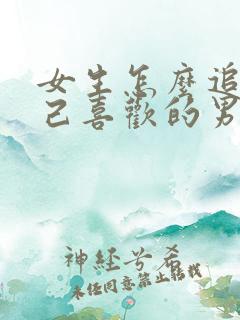 女生怎麼追
己喜歡的男
神經兮希
未經同意禁止轉載